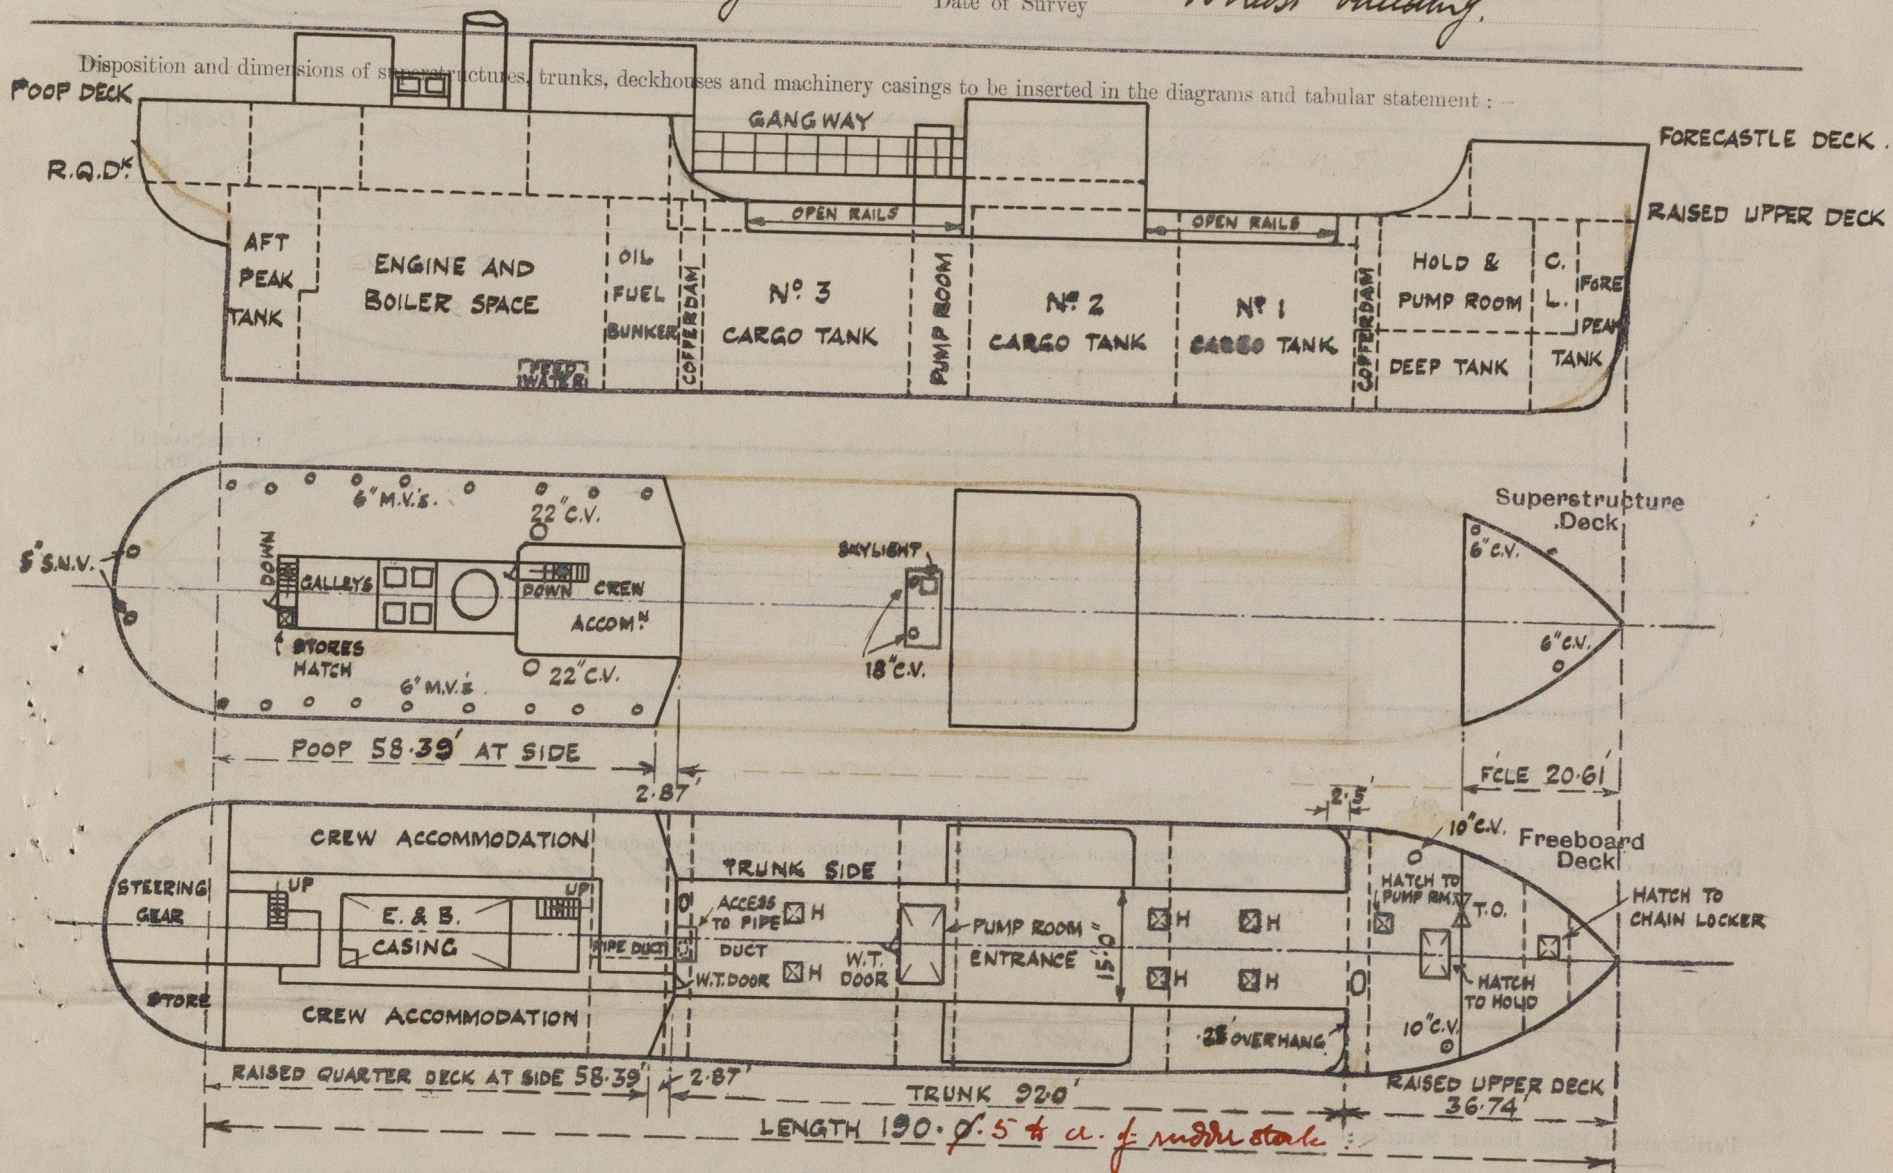 Date of Survey Whilst building.
Disposition and dimensions of superstructures, trunks, deckhouses and machinery casings to be inserted in the diagrams and tabular statement : —
POOP DECK
GANGWAY
FORECASTLE DECK.
R.Q.DK.
RAISED UPPER DECK
OPEN RAILS
OPEN RAILS
AFT
PEAK
TANK
ENGINE AND
BOILER SPACE
FEED
WATER
OIL
FUEL
BUNKER
COFFERDAM
No. 3
CARGO TANK
PUMP ROOM
No. 2
CARGO TANK
No. 1
CARGO TANK
COFFERDAM
HOLD &
PUMP ROOM
DEEP TANK
C.
L.
FORE
PEAK
TANK
Superstructure
Deck
6" M.V.'s.
22" C.V.
5" S.N.V.
DOWN
GALLEYS
DOWN
CREW
ACCOM N.
STORES
HATCH
6" M.V.'s
22" C.V.
SKYLIGHT
18" C.V.
6" C.V.
6" C.V.
POOP 58.39' AT SIDE
2.87'
F'CLE 20.61'
2.5'
Freeboard
Deck
CREW ACCOMMODATION
STEERING
GEAR
UP
E. & B.
CASING
UP
PIPE DUCT
STORE
CREW ACCOMMODATION
TRUNK SIDE
ACCESS
TO PIPE
DUCT
W.T. DOOR
H
H
W.T.
DOOR
PUMP ROOM
ENTRANCE
15.0'
H
H
H
H
10" C.V.
HATCH TO
PUMP RM.
T.O.
HATCH TO
CHAIN LOCKER
HATCH
TO HOLD
10" C.V.
OVERHANG
RAISED QUARTER DECK AT SIDE 58.39'
2.87'
TRUNK 92.0'
RAISED UPPER DECK
36.74'
LENGTH 190.0.5 to cl. of rudder stock